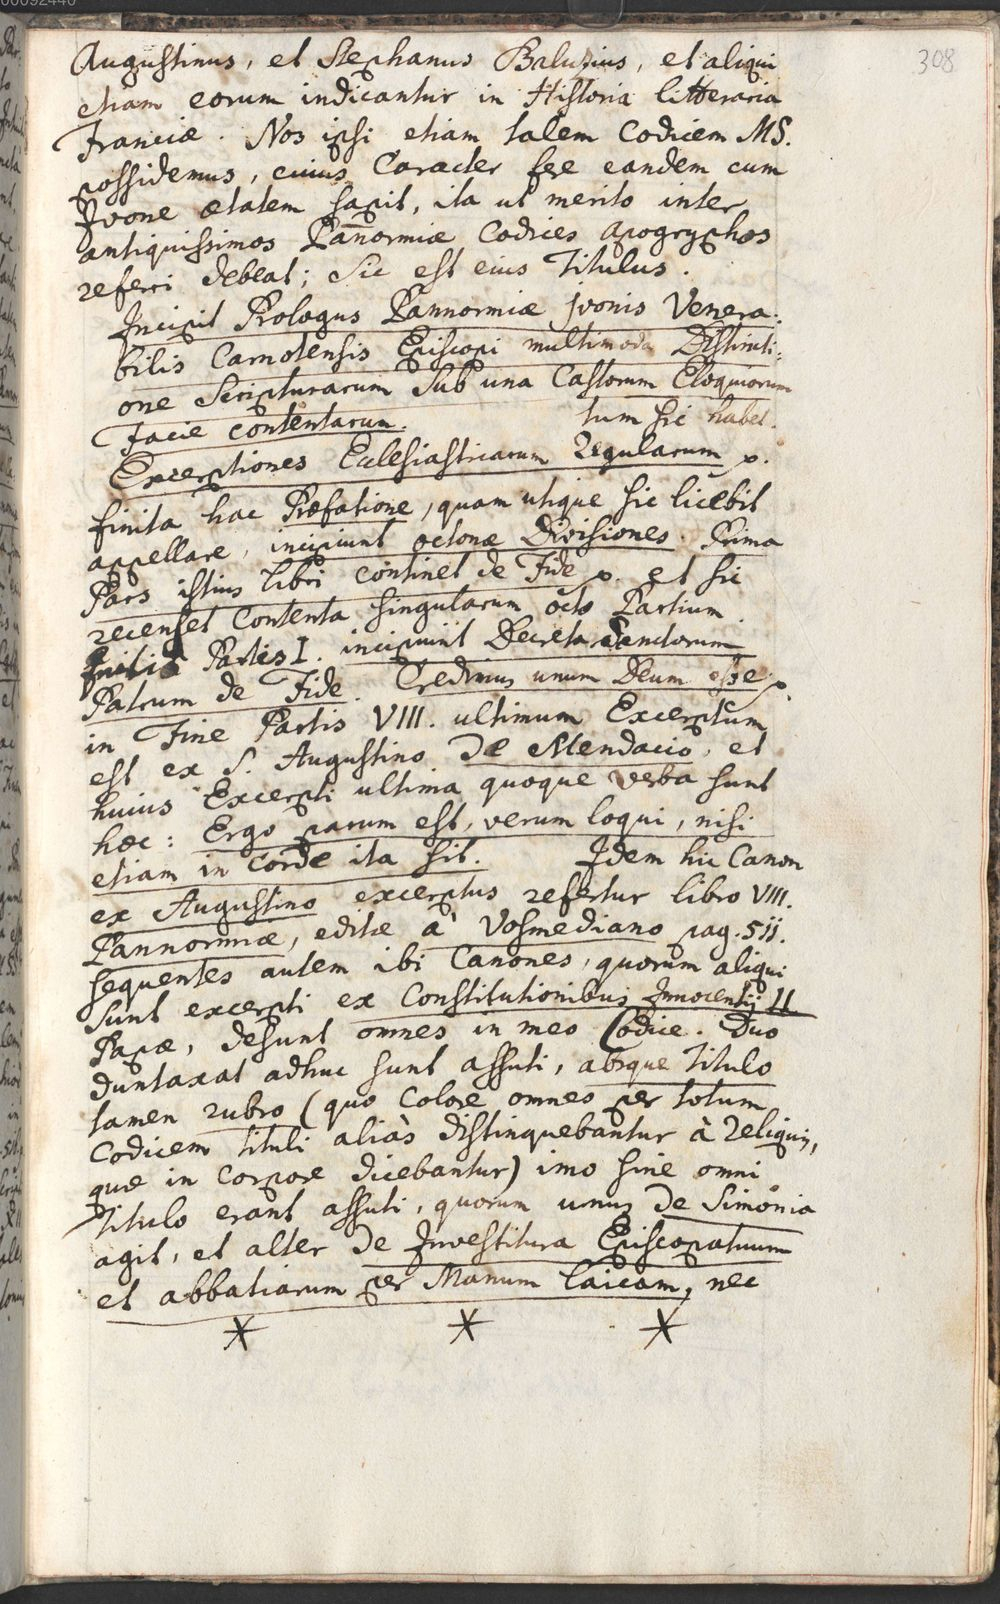 308
Augustinus, et Stephanus Baluzius, et aliqui
etiam eorum indicantur in Historia litteraria
Franciæ. Nos ipsi etiam talem Codicem MS.
possidemus, cuius Caracter fere eandem cum
Ivone ætatem sapit, ita ut merito inter
antiquissimos Pannormiæ Codices apogryphos
referri debeat; Sic est eius Titulus.
Incipit Prologus Pannormiæ jvonis Venera:
bilis Carnotensis Episcopi multimoda Distincti:
one Scripturarum Sub una Castorum Eloquiorum
facie contentarum. tum sic habet.
Exceptiones Ecclesiasticarum Regularum p.
finita hac Præfatione, quam utique sic licebit
appellare, incipiunt octonæ Divisiones. Prima
Pars istius libri continet de Fide p. et sic
recenset Contenta singularum octo Partium.
Initio Partis I. incipiunt Decreta Sanctorum
Patrum de Fide. Credimus unum Deum esse p.
in Fine Partis VIII. ultimum Excerptum
est ex S. Augustino De Mendacio, et
huius Excerpti ultima quoque verba sunt
hæc: Ergo parum est, verum loqui, nisi
etiam in corde ita sit. Idem hic Canon
ex Augustino excerptus refertur libro VIII.
Pannormiæ, editæ à Vosmediano pag. 511.
sequentes autem ibi Canones, quorum aliqui
sunt excerpti ex Constitutionibus Innocentij II
Papæ, desunt omnes in meo Codice. Duo
duntaxat adhuc sunt assuti, absque Titulo
tamen rubro (quo Colore omnes per totum
Codicem tituli aliàs distinquebantur à reliquis,
quæ in corpore dicebantur) imo sine omni
Titulo erant assuti, quorum unus De Simonia
agit, et alter De Investitura Episcopatuum
et abbatiarum per Manum laicam, nec
* * *